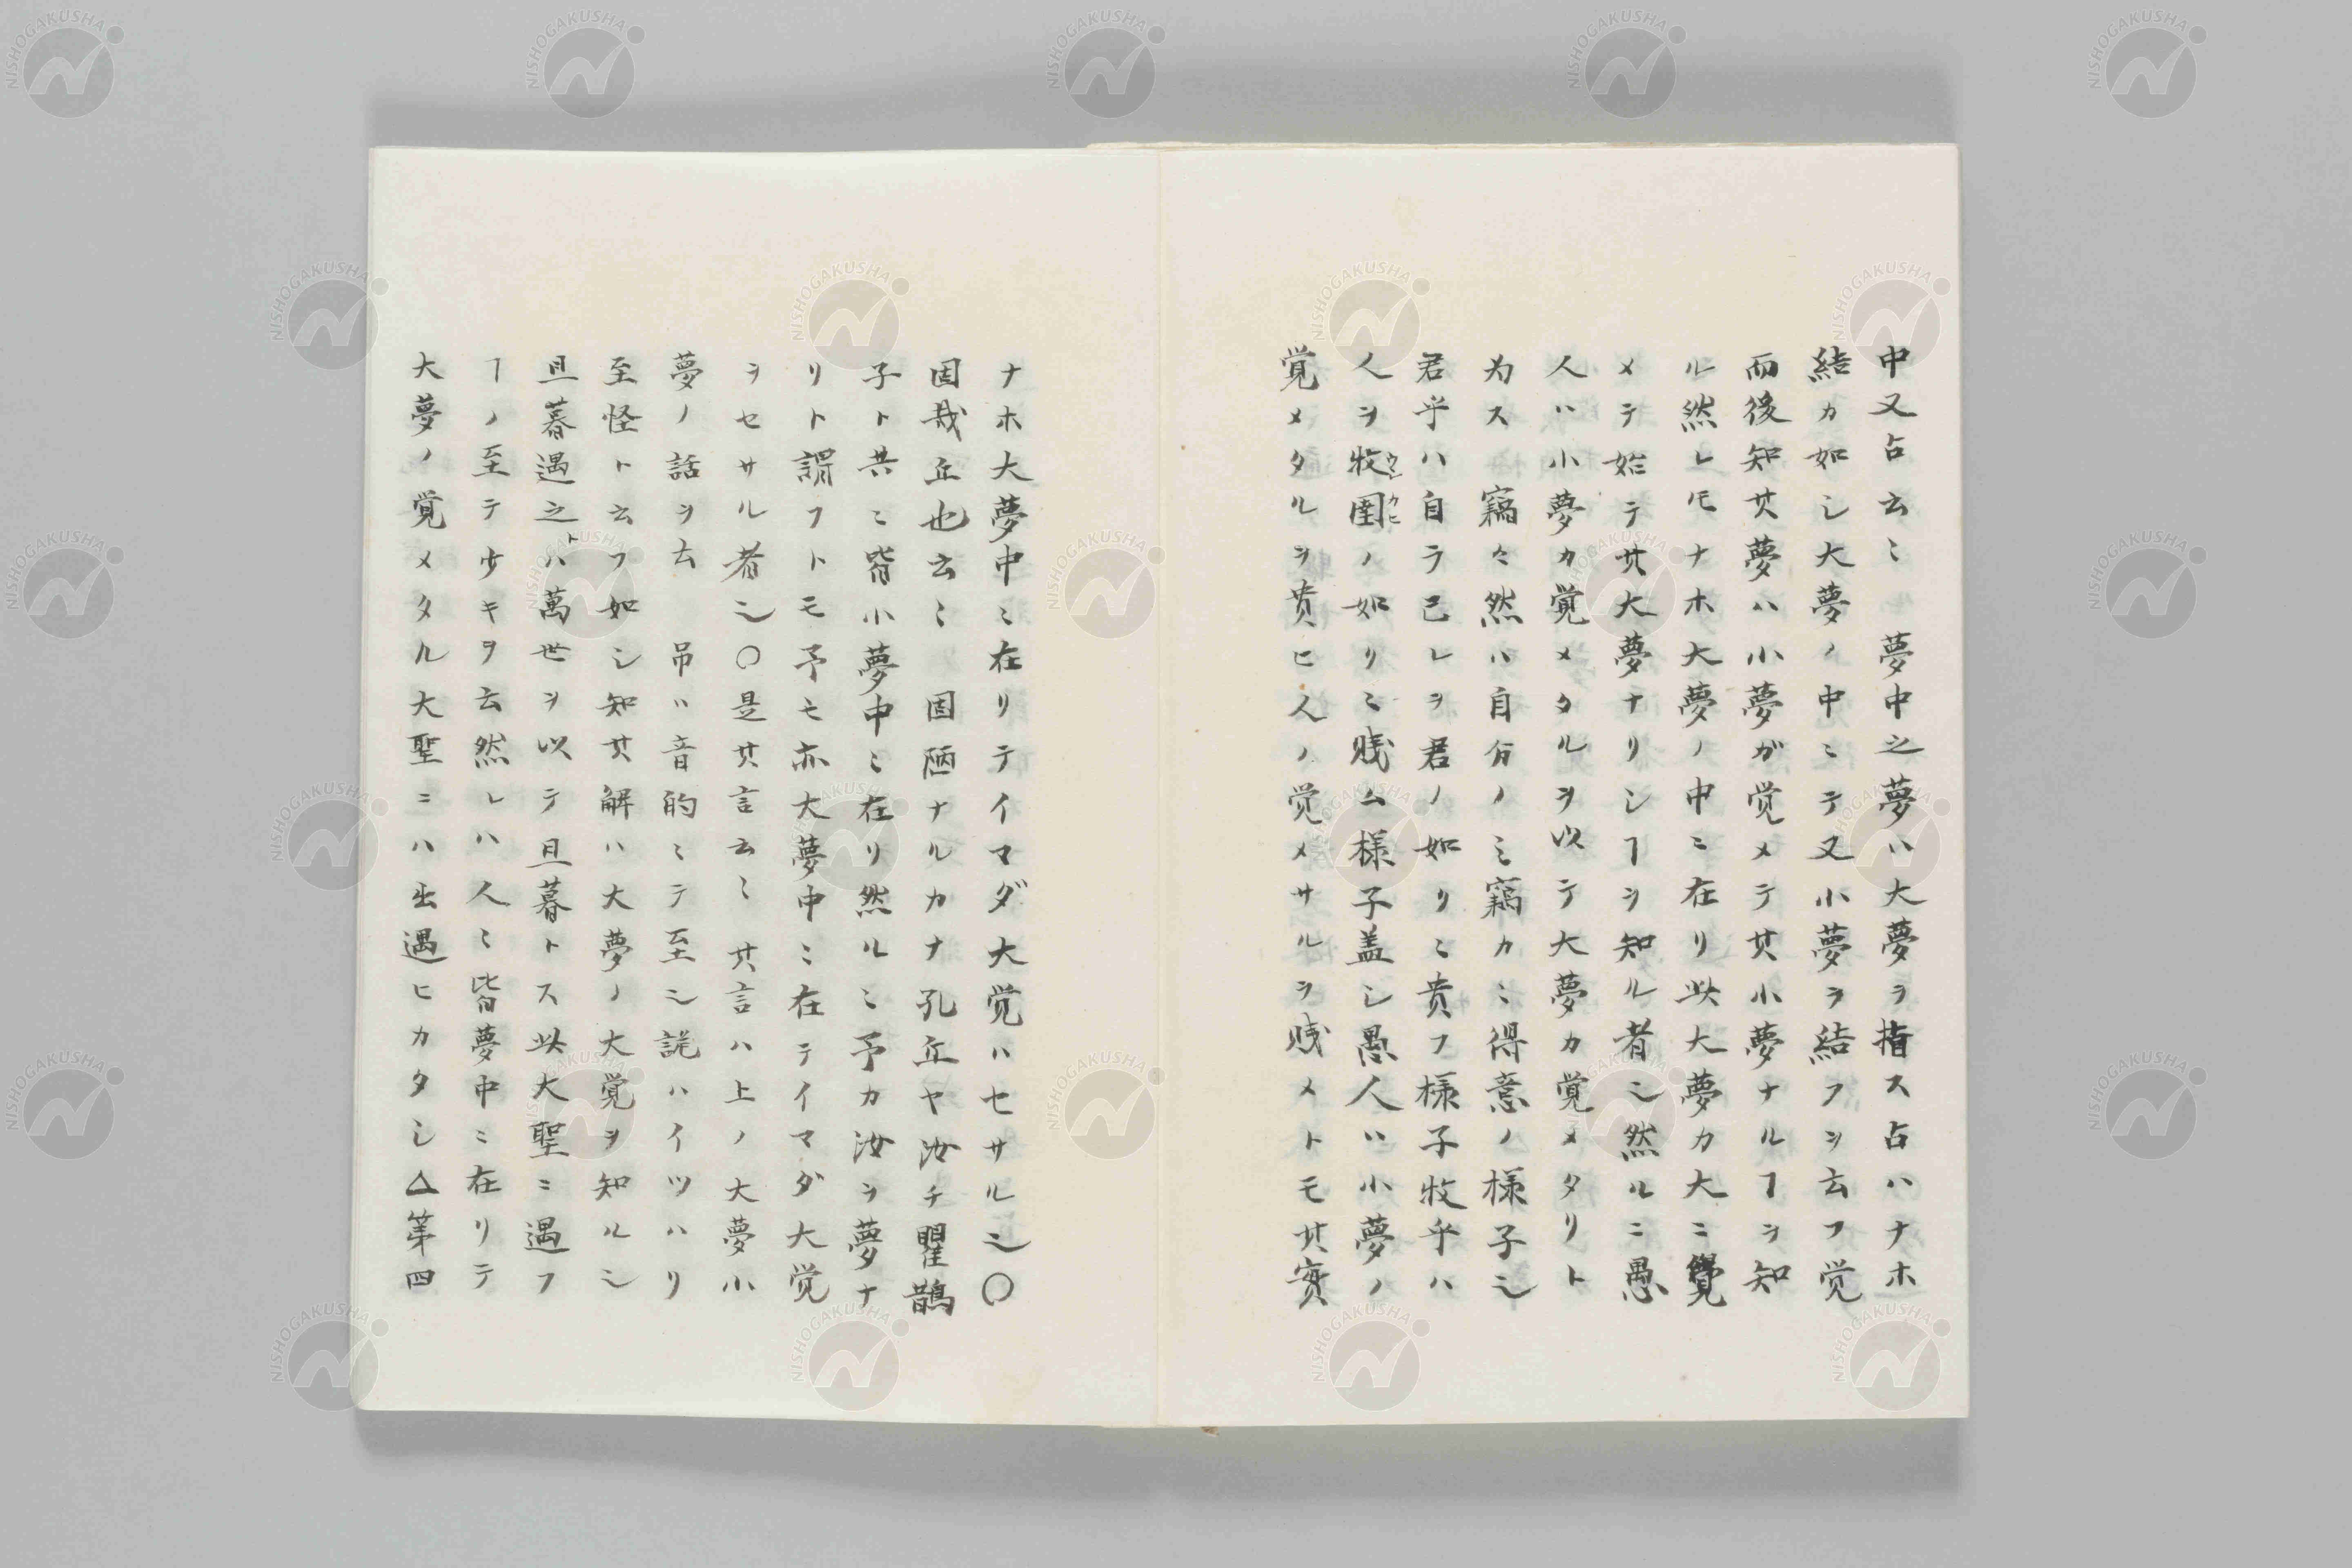 中又占云〻　夢中之夢ハ大夢ヲ指ス占ハナホ
結カ如シ大夢ノ中ミテ又小夢ヲ結フヲ云フ覚
而後知其夢ハ小夢ガ覚メテ其小夢ナルヿヲ知
ル然レ𪜈ナホ大夢ノ中ニ在リ此大夢カ大ニ覺
メテ始テ其大夢ナリシヿヲ知ル者也然ルニ愚
人ハ小夢カ覚メタルヲ以テ大夢カ覚メタリト
為ス　竊々然ハ自分ノミ竊カミ得意ノ様子也
君乎ハ自ラ己レヲ君ノ如リミ貴フ様子牧乎ハ
人ヲ牧圉ノ如リミ賎ム様子盖シ愚人ハ小夢ノ
覚メタルヲ貴ヒ人ノ覚メサルヲ賎メトモ其實
ナホ大夢中ミ在リテイマダ大覚ハセサル也〇
固哉丘也云〻　固陋ナルカナ孔丘ヤ汝チ瞿鵲
子ト共ミ皆小夢中ミ在リ然ルミ予カ汝ヲ夢ナ
リト謂フトモ予モ亦大夢中ミ在テイマダ大覚
ヲセサル者也〇是其言云〻　其言ハ上ノ大夢小
夢ノ話ヲ云　吊ハ音的ミテ至也詭ハイツハリ
至怪ト云フ如シ知其解ハ大夢ノ大覚ヲ知ル也
旦暮遇之ハ萬世ヲ以テ旦暮トス此大聖ニ遇フ
ヿノ至テ少キヲ云然レハ人〻皆夢中ニ在リテ
大夢ノ覚メタル大聖ニハ出遇ヒカタシ△第四
NISHOGAKUSHA